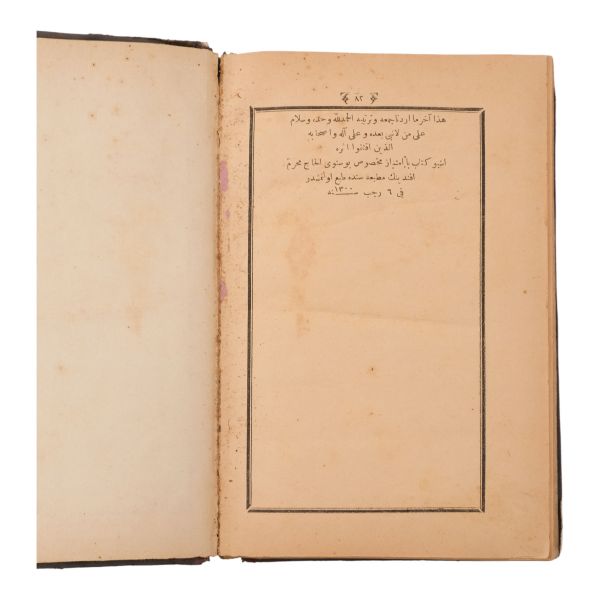 ٨٢
هذا آخر ما اردنا جمعه و ترتيبه الحمدلله وحده وسلام
على من لا نبى بعده و على آله و اصحابه
الذين اقتفوا اثره
اشبو كتاب با امتياز مخصوص بوسنوى الحاج محرم
افندينك مطبعه سنده طبع اولنمشدر
فى ٦ رجب سنه ١٣٠٠